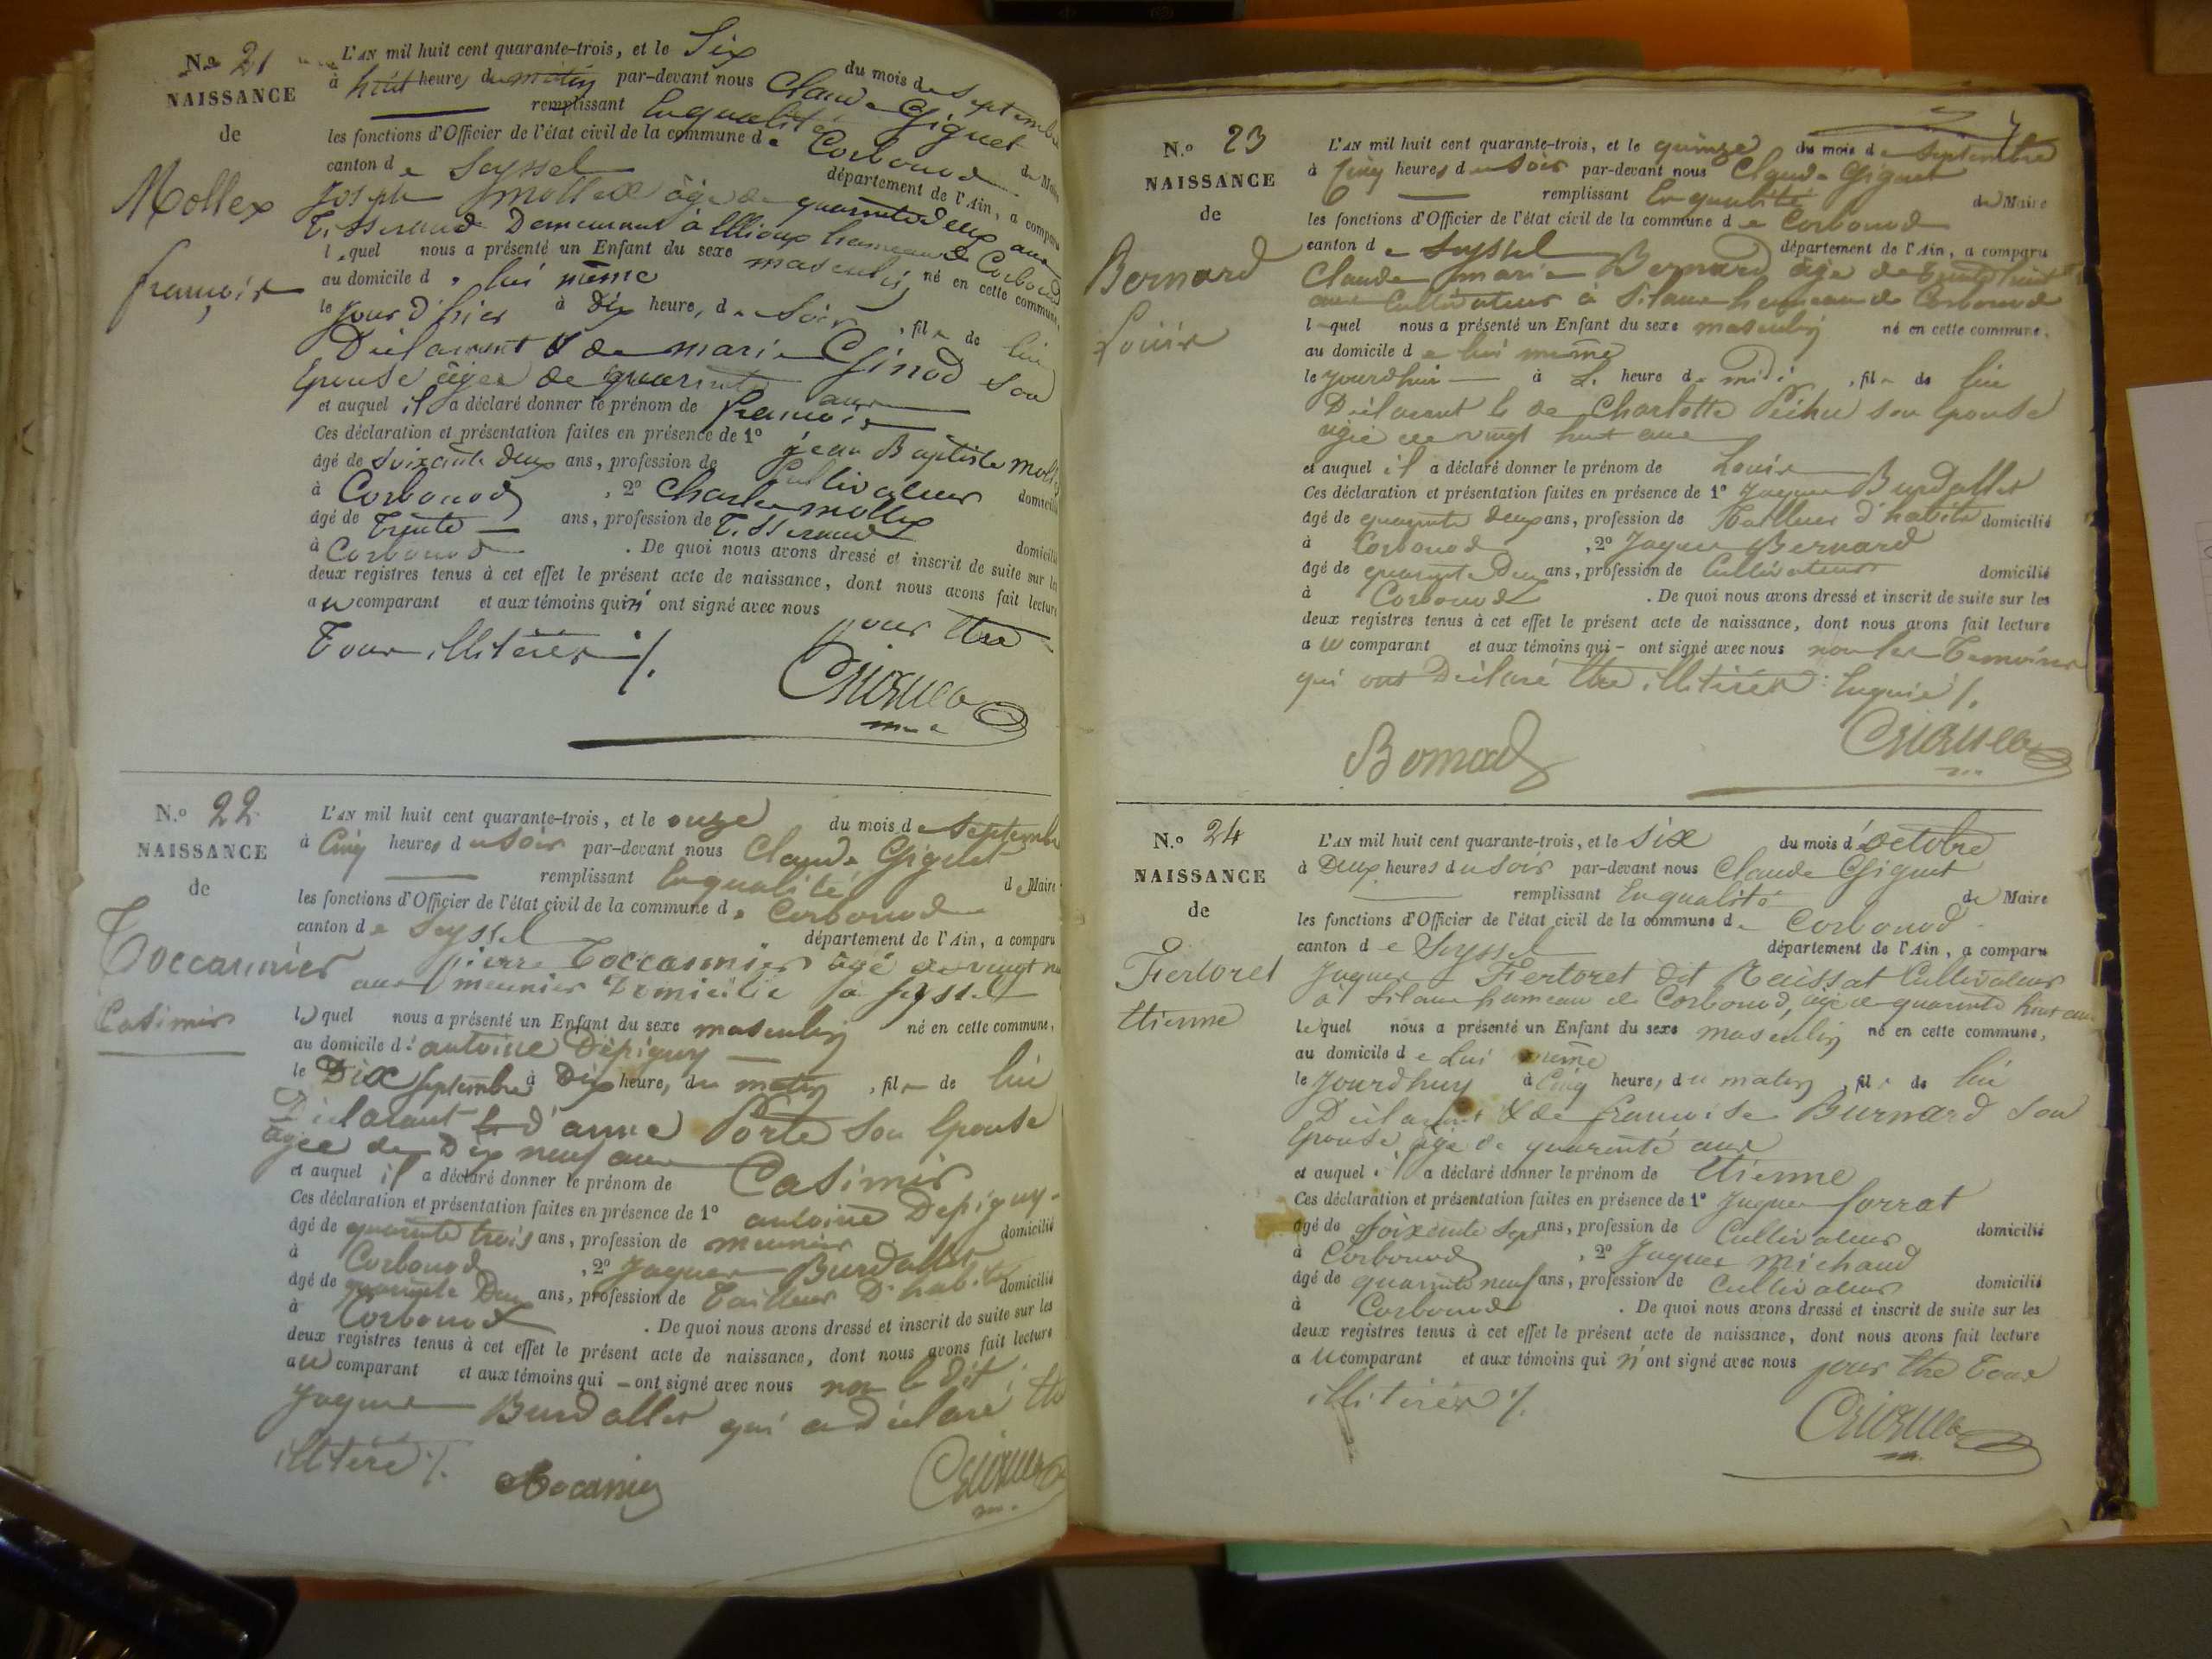 N.o 21
NAISSANCE
de
Mollex
françois
L'AN mil huit cent quarante-trois, et le Six du mois de Septembre
à huit heures du matin par-devant nous Claude Giguet
remplissant en qualité de Maire
les fonctions d'Officier de l'état civil de la commune de Corbonod
canton de Seyssel département de l'Ain, a comparu
Joseph mollex âgé de quarante deux ans
Tisserand Demeurant à hameau de Corbonod
lequel nous a présenté un Enfant du sexe masculin né en cette commune,
au domicile de lui même
le jour d'hier à Dix heure, du Soir, fils de lui
Déclarant & de marie Ginod Son
Epouse âgée de quarante ans
et auquel il a déclaré donner le prénom de françois
Ces déclaration et présentation faites en présence de 1° jean Baptiste
âgé de Soixante deux ans, profession de Cultivateur domicilié
à Corbonod, 2° Charles mollex
âgé de Trente ans, profession de Tisserand domicilié
à Corbonod. De quoi nous avons dressé et inscrit de suite sur les
deux registres tenus à cet effet le présent acte de naissance, dont nous avons fait lecture
au comparant et aux témoins qui n'ont signé avec nous pour être
Tous illitérés ./.
N.o 22
NAISSANCE
de
Toccannier
Casimir
L'AN mil huit cent quarante-trois, et le onze du mois de Septembre
à Cinq heures du Soir par-devant nous Claude Giguet
remplissant En qualité de Maire
les fonctions d'Officier de l'état civil de la commune de Corbonod
canton de Seyssel département de l'Ain, a comparu
pierre Toccannier âgé de vingt
ans meunier Domicilié à Seyssel
lequel nous a présenté un Enfant du sexe masculin né en cette commune,
au domicile d'antoine Dépigny
le Dix Septembre à Dix heure, du matin, fils de lui
Déclarant & d'anne Porte Son Epouse
âgée de Dix neuf ans
et auquel il a déclaré donner le prénom de Casimir
Ces déclaration et présentation faites en présence de 1° antoine Dépigny
âgé de quarante trois ans, profession de meunier domicilié
à Corbonod, 2° Jaques Burdallet
âgé de quarante Deux ans, profession de Tailleur D'habits domicilié
à Corbonod. De quoi nous avons dressé et inscrit de suite sur les
deux registres tenus à cet effet le présent acte de naissance, dont nous avons fait lecture
au comparant et aux témoins qui - ont signé avec nous non le Dit
Jaques Burdallet qui a Déclaré être
illitéré ./.
N.o 23
NAISSANCE
de
Bernard
Louis
L'AN mil huit cent quarante-trois, et le quinze du mois de Septembre
à Cinq heures du Soir par-devant nous Claude Giguet
remplissant En qualité de Maire
les fonctions d'Officier de l'état civil de la commune de Corbonod
canton de Seyssel département de l'Ain, a comparu
Claude marie Bernard âgé de trente huit
ans Cultivateur à Silans hameau de Corbonod
lequel nous a présenté un Enfant du sexe masculin né en cette commune,
au domicile de lui même
le jourdhui à heure de midi, fils de lui
Déclarant & de Charlotte son Epouse
agée de vingt huit ans
et auquel il a déclaré donner le prénom de Louis
Ces déclaration et présentation faites en présence de 1° Jaques Burdallet
âgé de quarante deux ans, profession de Tailleur d'habits domicilié
à Corbonod, 2° Jaques Bernard
âgé de quarante Deux ans, profession de Cultivateur domicilié
à Corbonod. De quoi nous avons dressé et inscrit de suite sur les
deux registres tenus à cet effet le présent acte de naissance, dont nous avons fait lecture
au comparant et aux témoins qui - ont signé avec nous non les Témoins
qui ont Déclaré être illitérés Enquis ./.
Bernard
N.o 24
NAISSANCE
de
Fertoret
Etienne
L'AN mil huit cent quarante-trois, et le Six du mois d'octobre
à Deux heures du Soir par-devant nous Claude Giguet
remplissant En qualité de Maire
les fonctions d'Officier de l'état civil de la commune de Corbonod
canton de Seyssel département de l'Ain, a comparu
Jaques Fertoret dit Raissat Cultivateur
à Silans hameau de Corbonod, âgé de quarante huit ans
lequel nous a présenté un Enfant du sexe masculin né en cette commune,
au domicile de Lui même
le jourdhuy à Cinq heure, du matin, fils de lui
Déclarant & de francoise Burnard Son
Epouse âgée de quarante ans
et auquel il a déclaré donner le prénom de Etienne
Ces déclaration et présentation faites en présence de 1° Jaques forrat
âgé de Soixante Sept ans, profession de Cultivateur domicilié
à Corbonod, 2° Jaques michaud
âgé de quarante neuf ans, profession de Cultivateur domicilié
à Corbonod. De quoi nous avons dressé et inscrit de suite sur les
deux registres tenus à cet effet le présent acte de naissance, dont nous avons fait lecture
au comparant et aux témoins qui n'ont signé avec nous pour être Tous
illitérés ./.